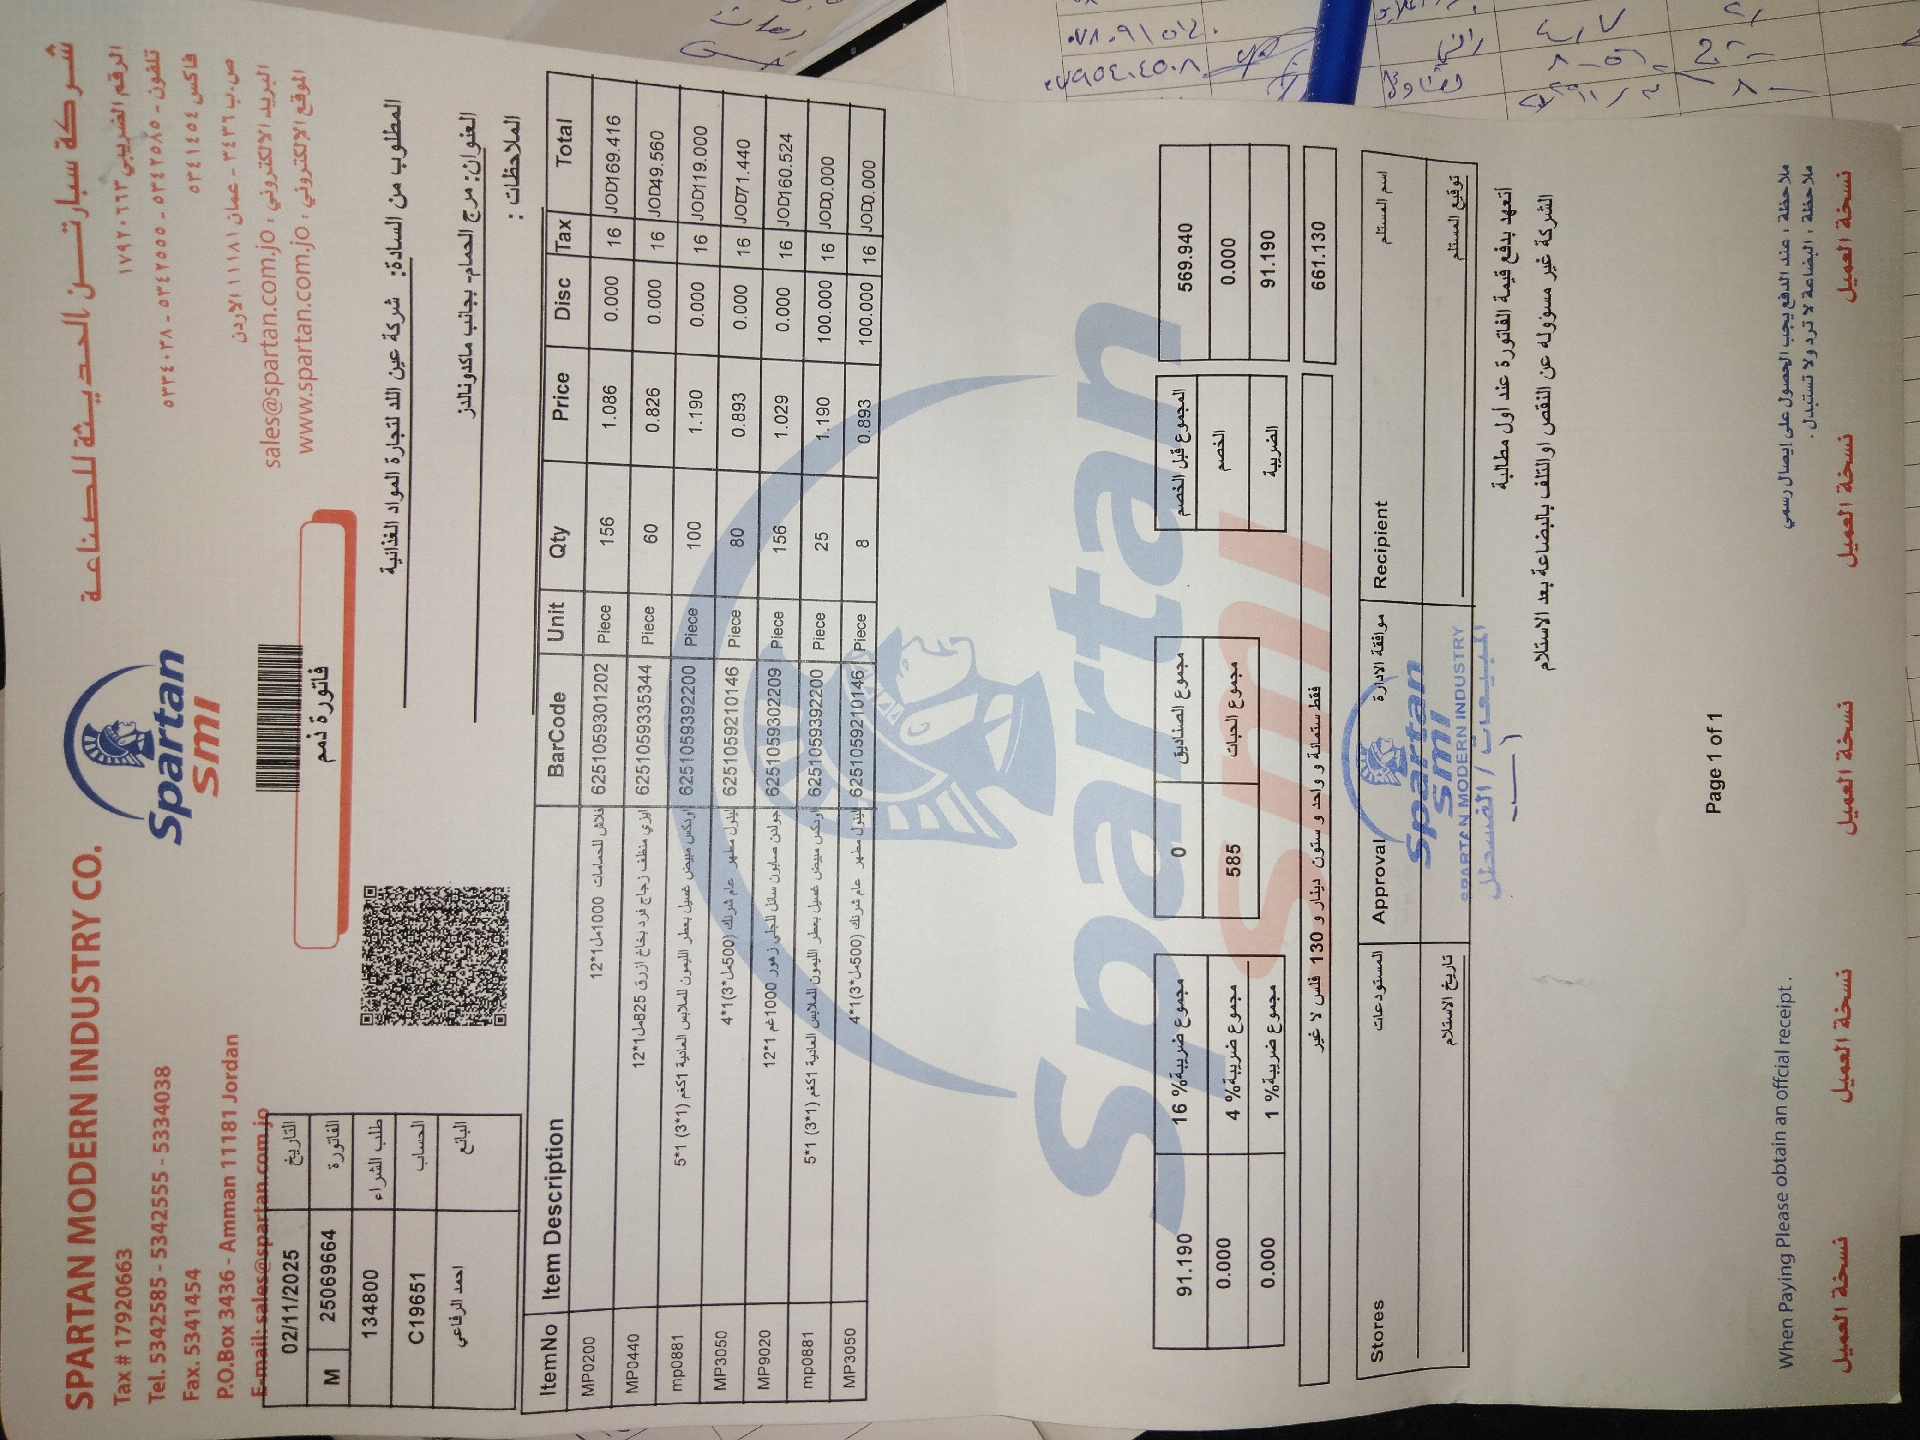 SPARTAN MODERN INDUSTRY CO.
Tax # 17920663
Tel. 5342585 - 5342555 - 5334038
Fax. 5341454
P.O.Box 3436 - Amman 111181 Jordan
E-mail: sales@spartan.com.jo
Spartan
smi
شركة سبارتن الحديثة للصناعة
الرقم الضريبي ١٧٩٢٠٦٦٣
تلفون - ٥٣٤٢٥٨٥ - ٥٣٤٢٥٥٥ - ٥٣٣٤٠٣٨
فاكس ٥٣٤١٤٥٤
ص.ب ٣٤٣٦ - عمان ١١١١٨١ الاردن
البريد الالكتروني : sales@spartan.com.jo
الموقع الإلكتروني : www.spartan.com.jo
فاتورة ذمم
02/11/2025 التاريخ
M 25069664 الفاتورة
134800 طلب الشراء
C19651 الحساب
احمد الرفاعي البائع
المطلوب من السادة: شركة عين اللد لتجارة المواد الغذائية
العنوان: مرج الحمام- بجانب ماكدونالدز
الملاحظات :
ItemNo Item Description BarCode Unit Qty Price Disc Tax Total
MP0200 فلاش للحمامات 1000مل1*12 6251059301202 Piece 156 1.086 0.000 16 JOD169.416
MP0440 ايزي منظف زجاج فرد بخاخ ازرق 825مل1*12 6251059335344 Piece 60 0.826 0.000 16 JOD49.560
mp0881 اودكس مبيض غسيل بعطر الليمون للملابس العادية 1كغم (1*3) 1*5 6251059392200 Piece 100 1.190 0.000 16 JOD119.000
MP3050 لينول مطهر عام شرنك (500مل*3)1*4 6251059210146 Piece 80 0.893 0.000 16 JOD71.440
MP9020 جولدن صابون سائل للجلي زهور 1000غم 1*12 6251059302209 Piece 156 1.029 0.000 16 JOD160.524
mp0881 اودكس مبيض غسيل بعطر الليمون للملابس العادية 1كغم (1*3) 1*5 6251059392200 Piece 25 1.190 100.000 16 JOD0.000
MP3050 لينول مطهر عام شرنك (500مل*3)1*4 6251059210146 Piece 8 0.893 100.000 16 JOD0.000
Spartan
smi
91.190 مجموع ضريبة% 16
0.000 مجموع ضريبة% 4
0.000 مجموع ضريبة% 1
0 مجموع الصناديق
585 مجموع الحبات
المجموع قبل الخصم 569.940
الخصم 0.000
الضريبة 91.190
فقط ستمائة و واحد و ستون دينار و 130 فلس لا غير 661.130
Stores المستودعات Approval موافقة الادارة Recipient اسم المستلم
تاريخ الاستلام
توقيع المستلم
Spartan
smi
SPARTAN MODERN INDUSTRY
أتعهد بدفع قيمة الفاتورة عند أول مطالبة
الشركة غير مسؤوله عن النقص اوالتلف بالبضاعة بعد الاستلام
Page 1 of 1
When Paying Please obtain an offcial receipt .
ملاحظة : عند الدفع يجب الحصول على إيصال رسمي
ملاحظة : البضاعة لا ترد ولا تستبدل .
نسخة العميل نسخة العميل نسخة العميل نسخة العميل نسخة العميل